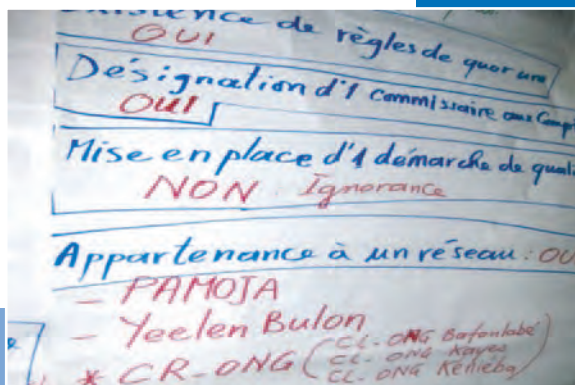 de règles de quorum
OUI
Désignation d'1 Commissaire aux
OUI
Mise en place d'1 démarche de
NON Ignorance
Appartenance à un réseau : OU
- PAMOJA
- Yeelen Bulon
* CR-ONG (CL-ONG Bafoulabé
CL-ONG Kayes
CL-ONG Kéniéba)